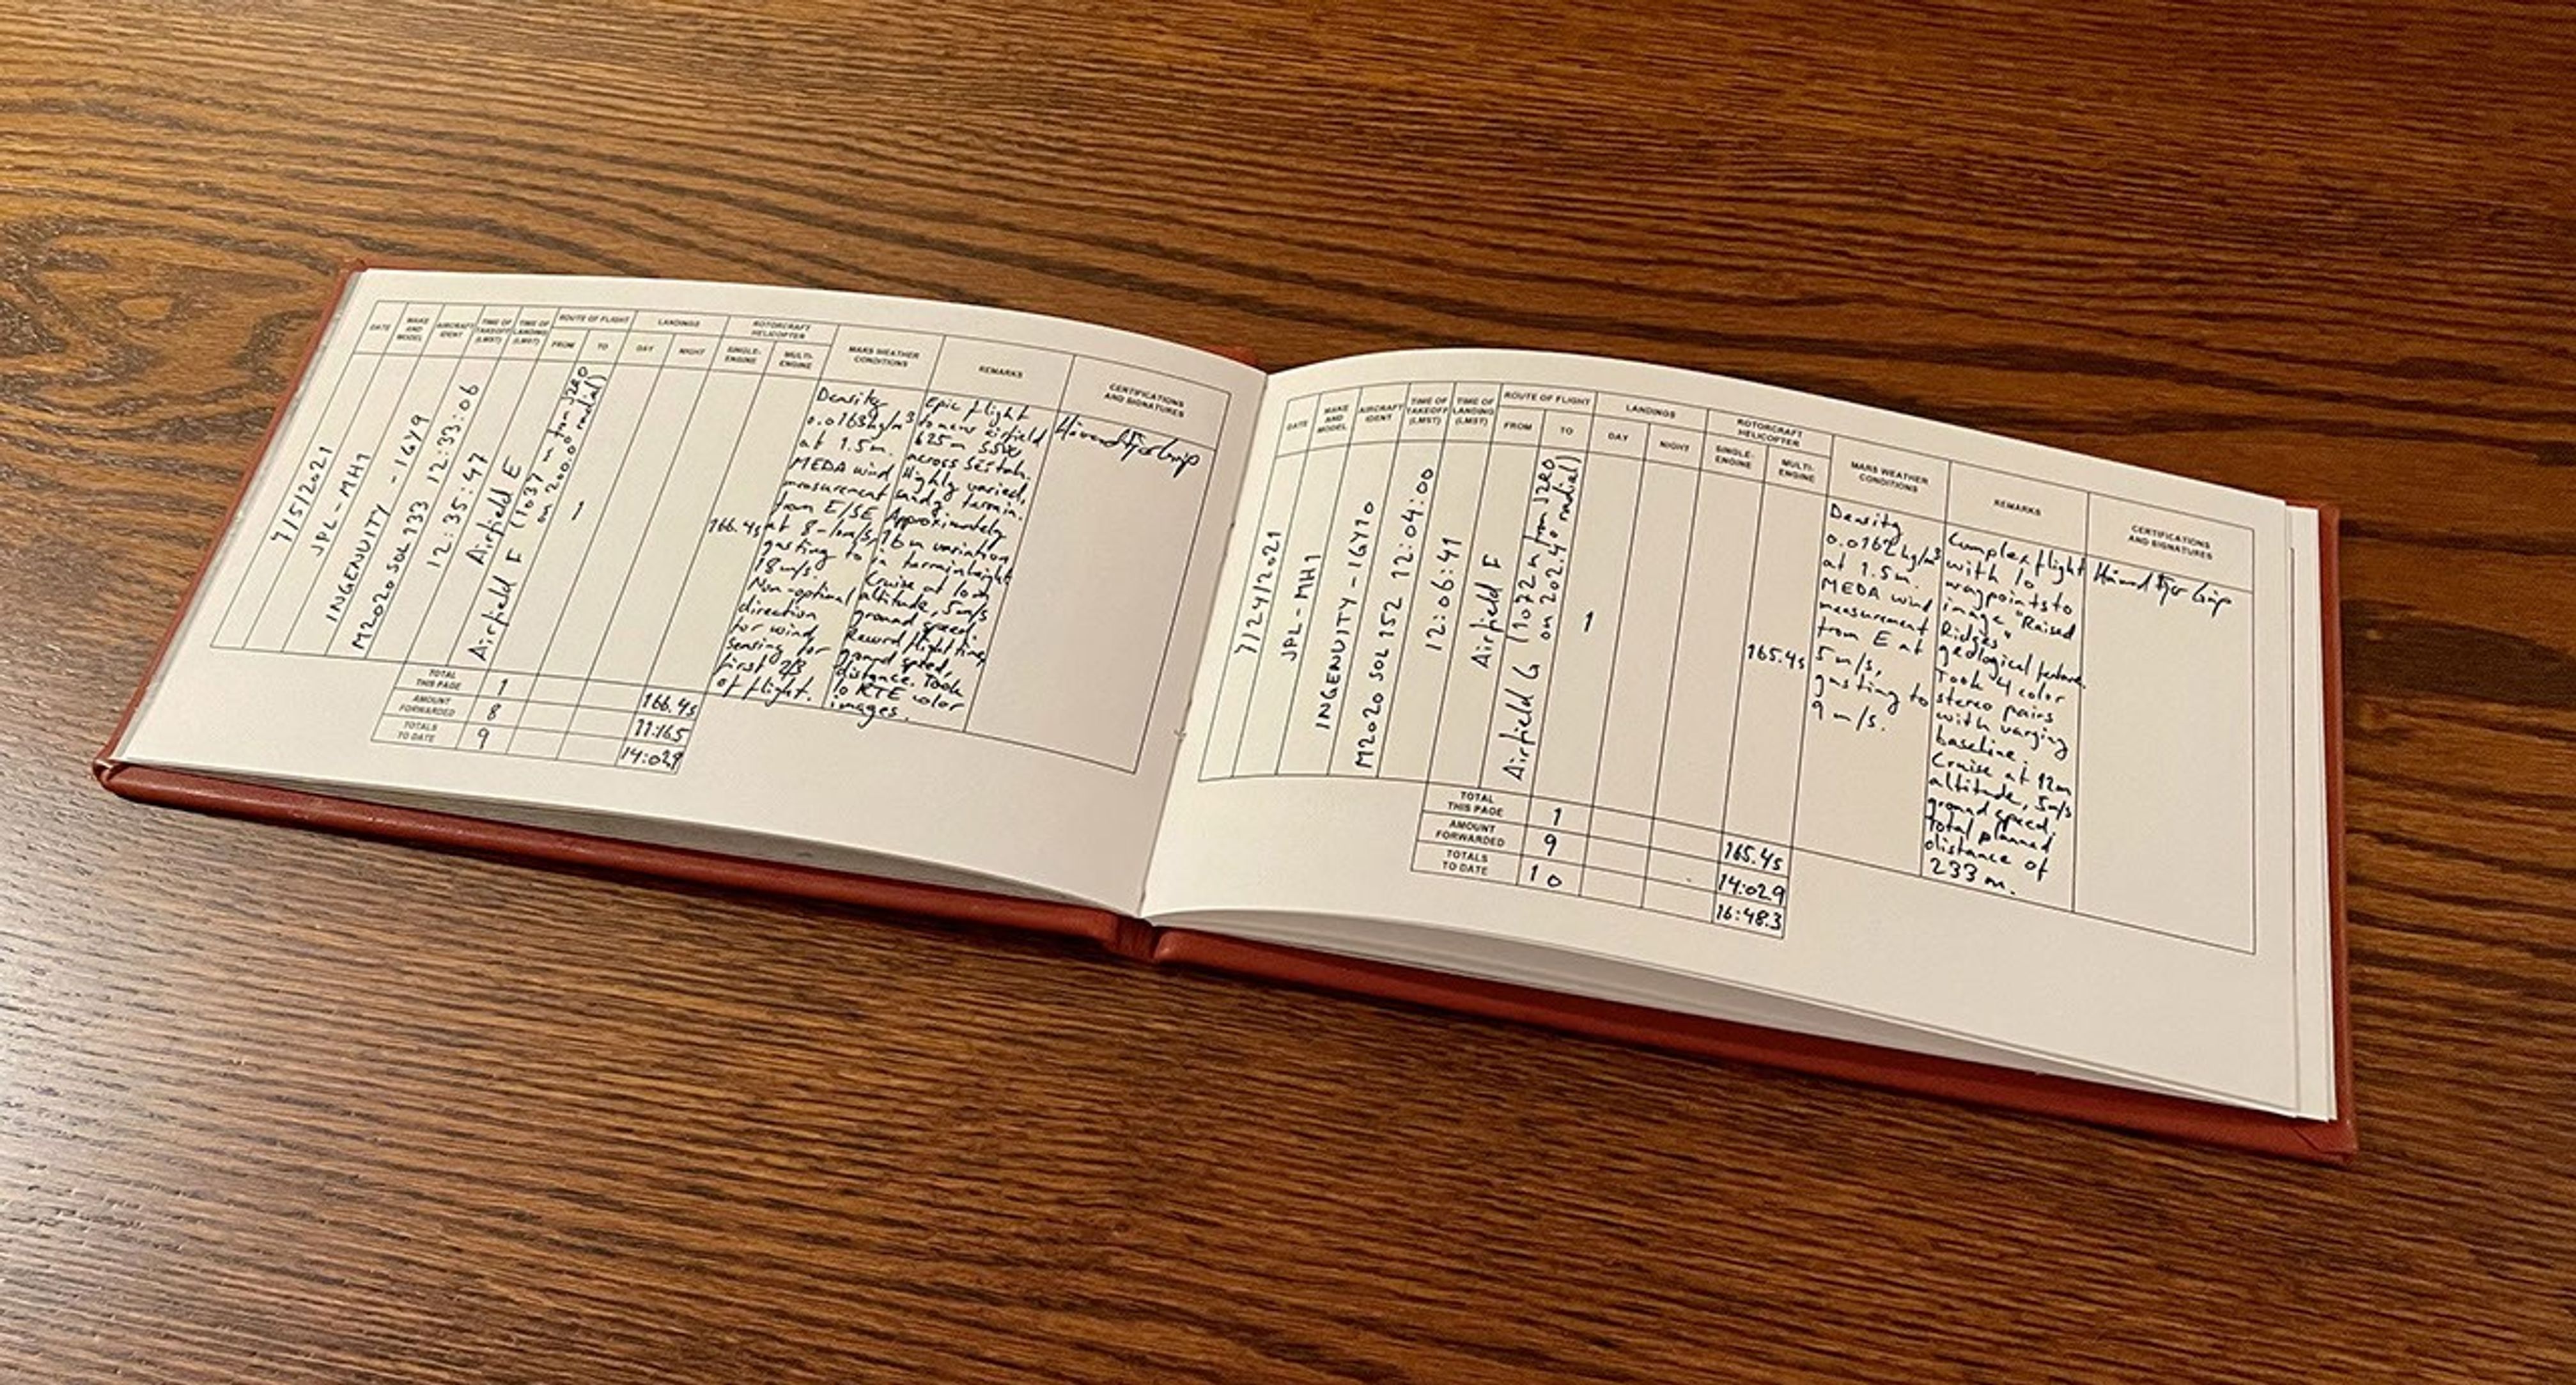 DATE
MAKE
AND
MODEL
AIRCRAFT
IDENT
TIME OF
TAKEOFF
(LMST)
TIME OF
LANDING
(LMST)
ROUTE OF FLIGHT
FROM
TO
LANDINGS
DAY
NIGHT
ROTORCRAFT
HELICOPTER
SINGLE-
ENGINE
MULTI-
ENGINE
MARS WEATHER
CONDITIONS
REMARKS
CERTIFICATIONS
AND SIGNATURES
7/5/2021
JPL-MH1
INGENUITY - IGY9
M2020 SOL 133 12:33:06
12:35:47
Airfield E
Airfield F (1037 m from JZRO
on 200.0° radial)
1
166.4s
Density
0.0163kg/m³
at 1.5m.
MEDA wind
measurement
from E/SE
at 8-10m/s,
gusting to
18m/s.
Non-optimal
direction
for wind
sensing for
first 2/3
of flight.
Epic flight
to new airfield
625m SSW
across Séítah.
Highly varied,
sandy terrain.
Approximately
16m variation
in terrain height
Cruise at 10m
altitude, 5m/s
ground speed.
Record flight time,
ground speed,
distance. Took
10 RTE color
images.
TOTAL
THIS PAGE
1
166.4s
AMOUNT
FORWARDED
8
11:16.5
TOTALS
TO DATE
9
14:02.9
DATE
MAKE
AND
MODEL
AIRCRAFT
IDENT
TIME OF
TAKEOFF
(LMST)
TIME OF
LANDING
(LMST)
ROUTE OF FLIGHT
FROM
TO
LANDINGS
DAY
NIGHT
ROTORCRAFT
HELICOPTER
SINGLE-
ENGINE
MULTI-
ENGINE
MARS WEATHER
CONDITIONS
REMARKS
CERTIFICATIONS
AND SIGNATURES
7/24/2021
JPL-MH1
INGENUITY - IGY10
M2020 SOL 152 12:04:00
12:06:41
Airfield F
Airfield G (1072 m from JZRO
on 202.4° radial)
1
165.4s
Density
0.0162kg/m³
at 1.5m.
MEDA wind
measurement
from E at
5m/s,
gusting to
9m/s.
Complex flight
with 10
waypoints to
image "Raised
Ridges"
geological feature.
Took 4 color
stereo pairs
with varying
baseline.
Cruise at 12m
altitude, 5m/s
ground speed.
Total planned
distance of
233m.
TOTAL
THIS PAGE
1
165.4s
AMOUNT
FORWARDED
9
14:02.9
TOTALS
TO DATE
10
16:48.3